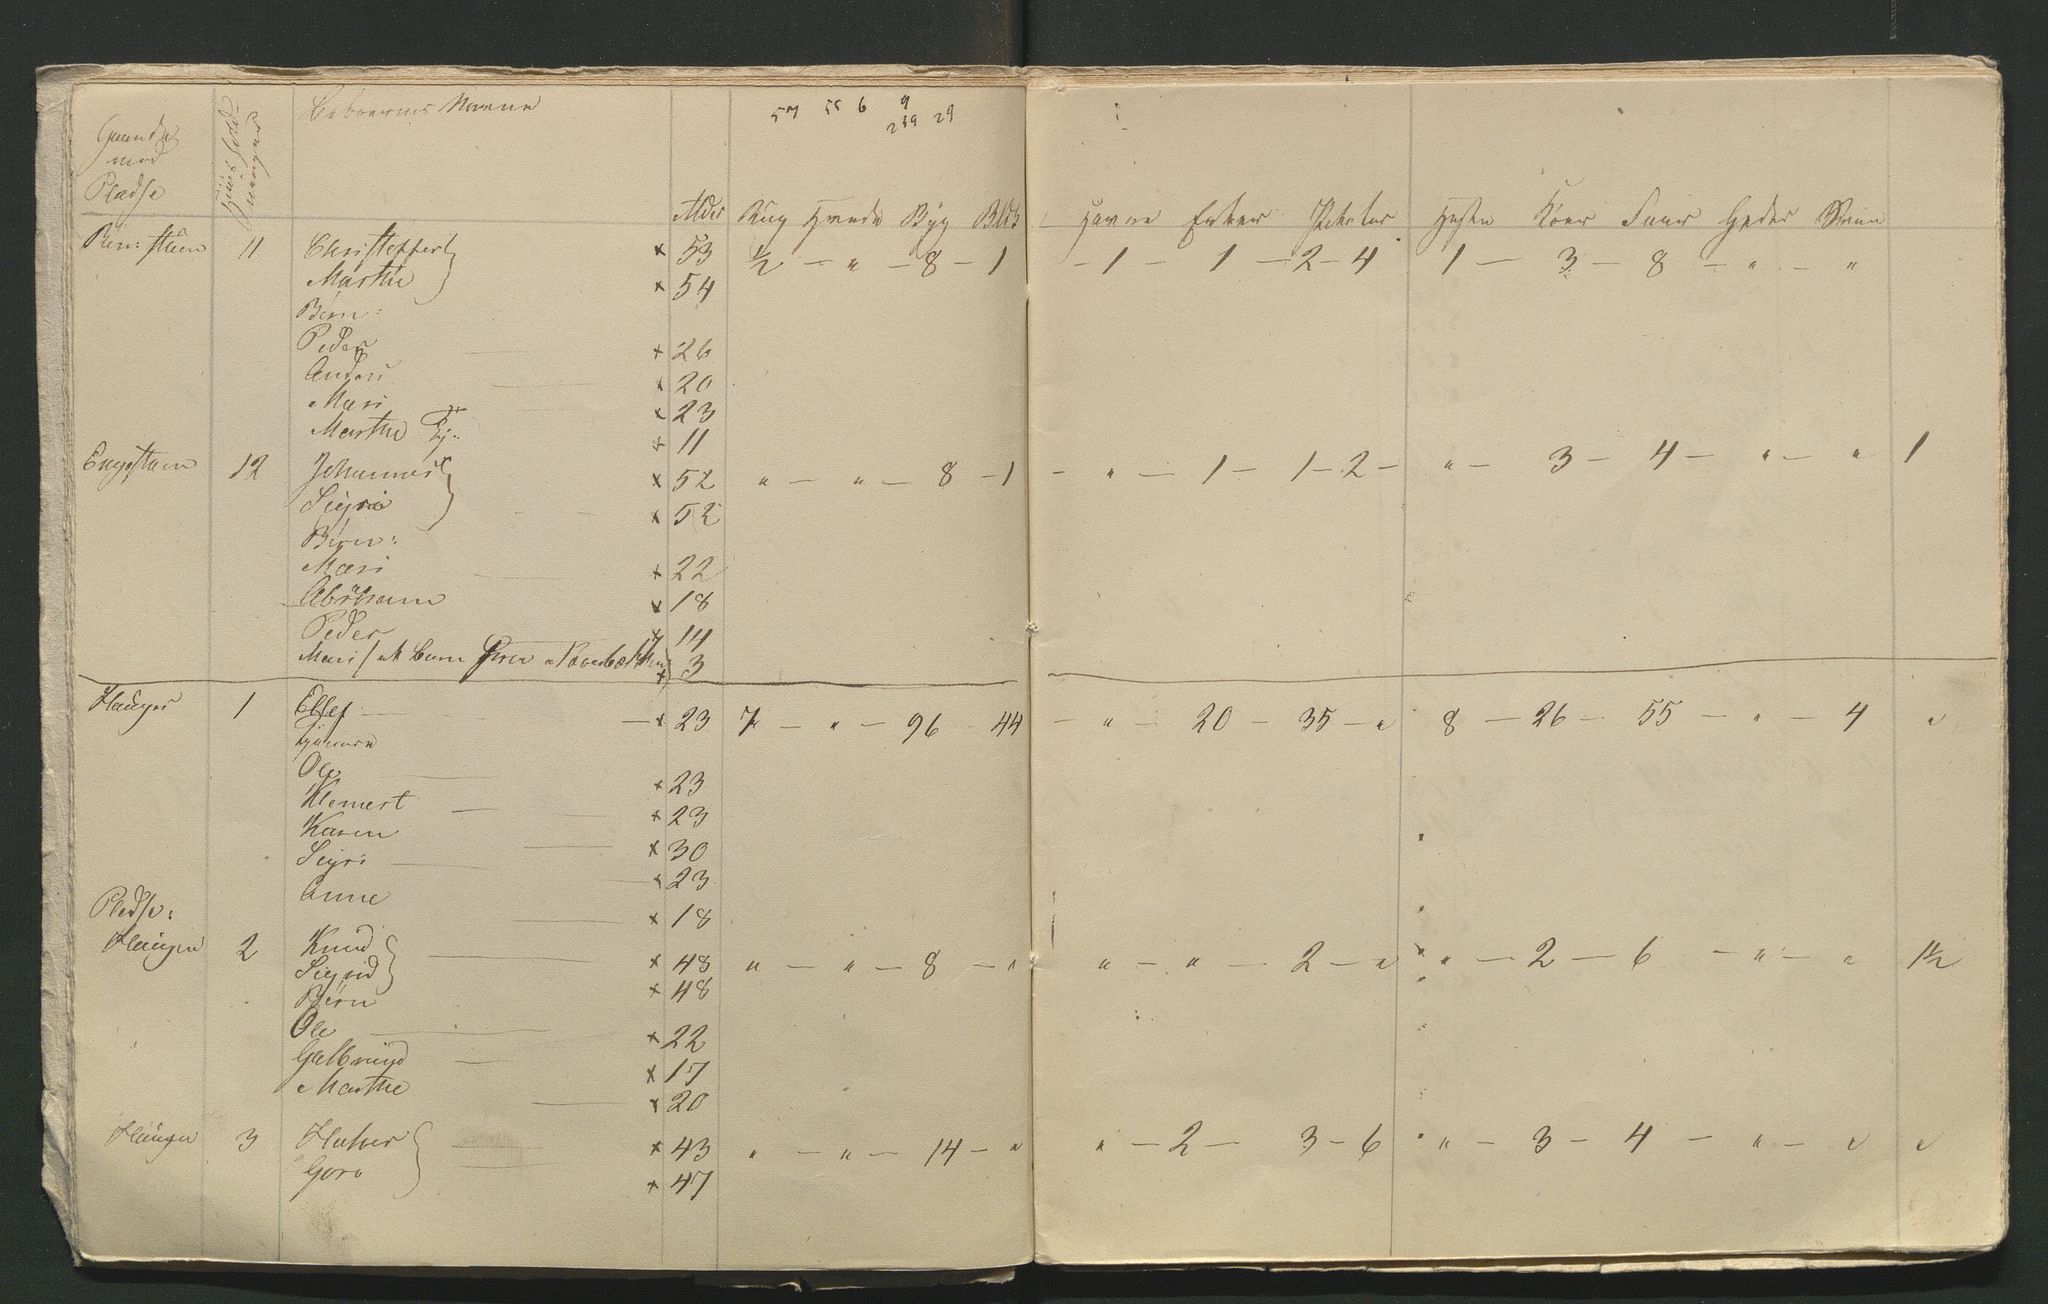 57 55 6 9
239 29
Gaarde
med
Pladse
Beboernes Navne
Alder Rug Hvede Byg Bld:
Havre Erter Poteter Heste Køer Faar Geder Sviin
11 Christoffer × 53 ½ — " — 8 — 1 — 1 — 1 — 2 — 4 1 — 3 — 8 — " — "
Marthe × 54
Børn:
Peder × 26
Anders × 20
Mari × 23
Marthe Tj: × 11
Engestuen 12 Johannes × 52 " — " — 8 — 1 — " — 1 — 1 — 2 — " — 3 — 4 — " — " 1
Sigri × 52
Børn:
Mari × 22
Abraham × 18
Peder × 14
Mari × 3
Hauger 1 Ellef × 23 7 — " — 96 — 44 — " — 20 — 35 — " 8 — 26 — 55 — " — 4 "
Tjenere
Ole × 23
Klemert × 23
Karen × 30
Sigri × 23
Anne × 18
Pladse:
Haugen 2 Knud × 48 " — " — 8 — " " — " — 2 — " " — 2 — 6 — " — " 1½
Sigrid × 48
Børn
Ole × 22
Gulbrand × 17
Marthe × 20
Haugen 3 Halvor × 43 " — " — 14 — " " — 2 — 3 — 6 " — 3 — 4 — " — " "
Goro × 47